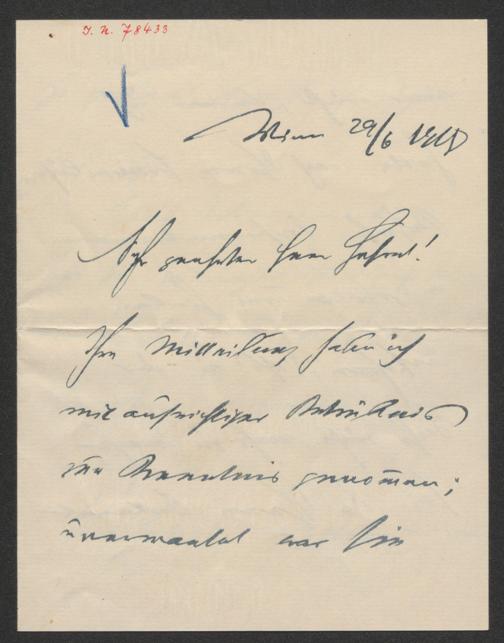 J. N. 78433
Wien 29/6 191
Sehr geehrter Herr Hofrat!
Ihre Mitteilung habe ich
mit aufrichtiger Betrübnis
zur Kenntnis genom̅en;
unerwartet war sie